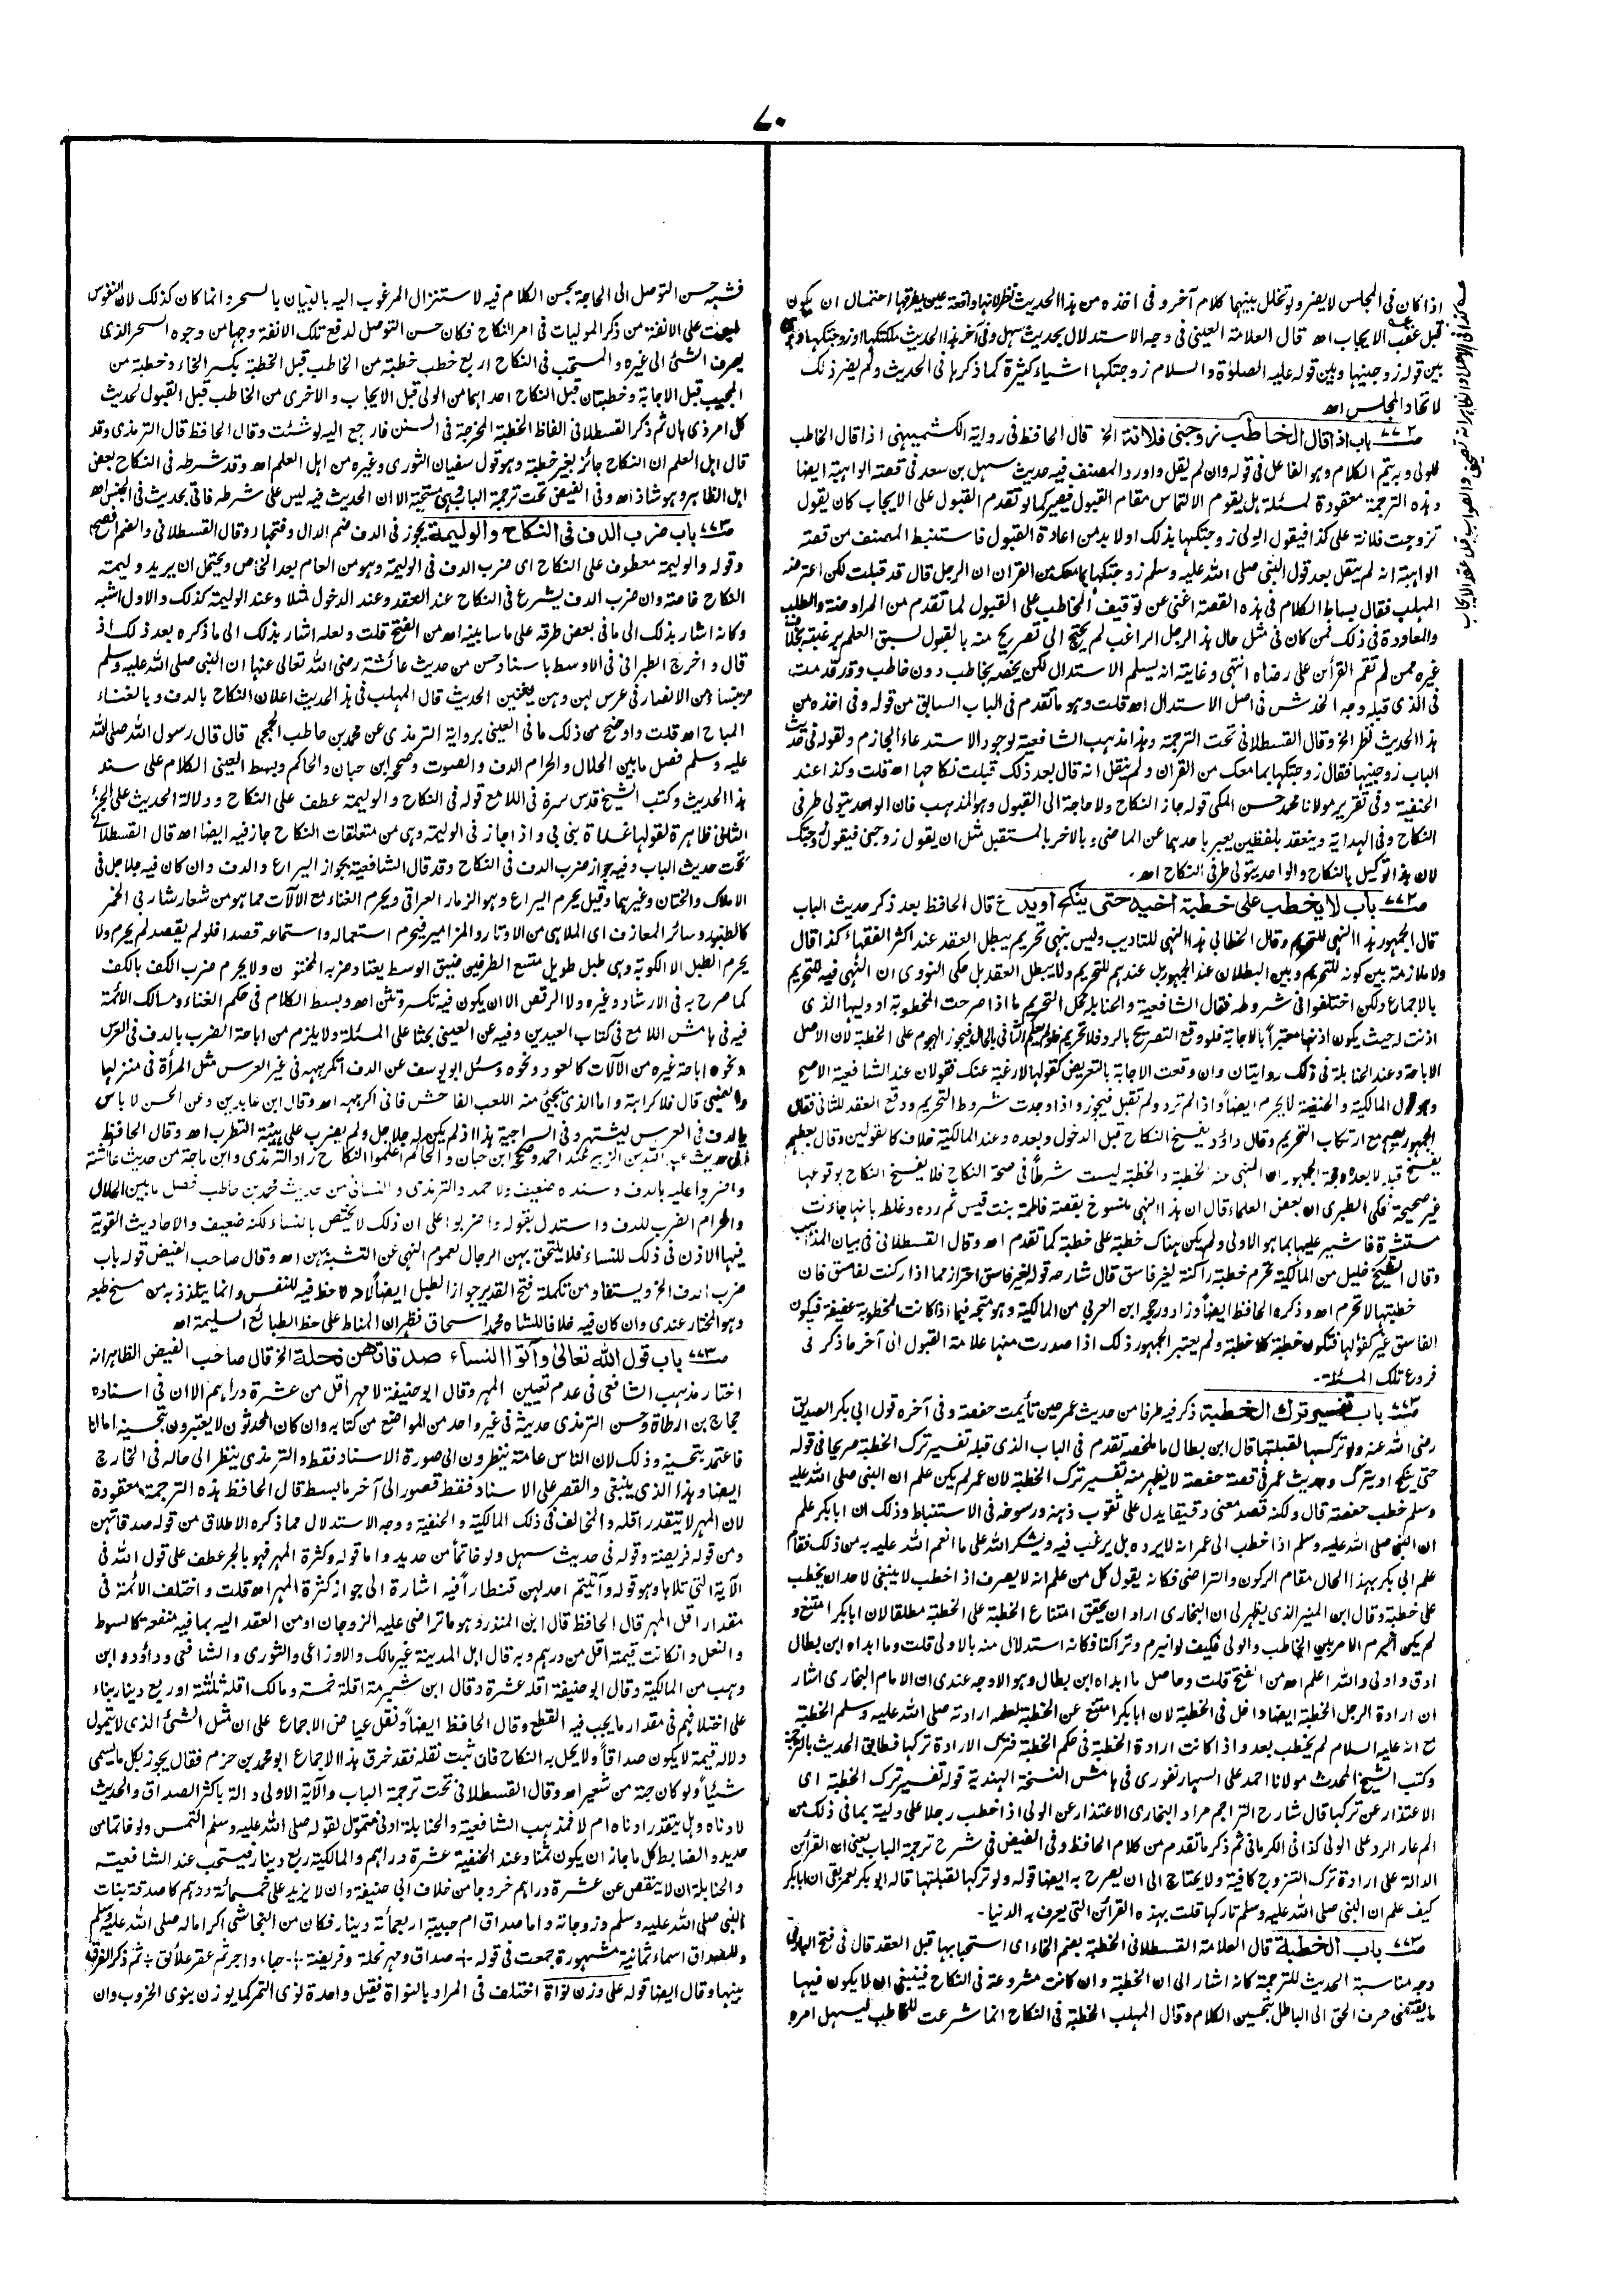 ٧٠
اذا كان فى المجلس لا يضر ولو تخلل بينهما كلام آخر و فى اخذه من هذا الحديث نظر لانها واقعة عين يطرقها احتمال ان يكون
قبل عقب الايجاب اھ قال العلامة العينى فى وجه الاستدلال بحديث سهل وفى آخر هذا الحديث ملكتكها او زوجتكها
بين قوله زوجنيها وبين قوله عليه الصلوٰة والسلام زوجتكها اشياء كثيرة كما ذكرها فى الحديث ولم يضر ذلك
لاتحاد المجلس اھ
باب اذا قال الخاطب زوجنى فلانة الخ قال الحافظ فى رواية الكشميهنى اذا قال الخاطب
للولى وبه يتم الكلام وهو الفاعل فى قوله وان لم يقل واورد المصنف فيه حديث سهل بن سعد فى قصة الواهبة ايضا
وهذه الترجمة معقودة لمسئلة هل يقوم الالتماس مقام القبول فيصير كما لو تقدم القبول على الايجاب كان يقول
تزوجت فلانة على كذا فيقول الولى زوجتكها بذلك او لا بد من اعادة القبول فاستنبط المصنف من قصة
الواهبة انه لم ينقل بعد قول النبى صلى الله عليه وسلم زوجتكها بما معك من القران ان الرجل قال قد قبلت لكن اعترضه
المهلب فقال بساط الكلام فى هذه القصة اغنى عن توقيف المخاطب على القبول لما تقدم من المراوضة والطلب
والمعاودة فى ذلك فمن كان فى مثل حال هذا الرجل الراغب لم يحتج الى تصريح منه بالقبول لسبق العلم برغبته بخلاف
غيره ممن لم تقم القرائن على رضاه انتهى وغايته انه يسلم الاستدلال لكن يخصه بخاطب دون خاطب وقد قدمت
فى الذى قبله وجه الخدش فى اصل الاستدلال اھ قلت وهو ما تقدم فى الباب السابق من قوله وفى اخذه من
هذا الحديث نظر الخ وقال القسطلانى تحت الترجمة وهذا مذهب الشافعية لوجود الاستدعاء الجازم ولقوله فى حديث
الباب زوجنيها فقال زوجتكها بما معك من القران ولم ينقل انه قال بعد ذلك قبلت نكاحها اھ قلت وكذا عند
الحنفية وفى تقرير مولانا محمد حسن المكى قوله جاز النكاح ولا حاجة الى القبول وهو المذهب فان الواحد يتولى طرفى
النكاح وفى الهداية وينعقد بلفظين يعبر باحدهما عن الماضى وبالاخر بالمستقبل مثل ان يقول زوجنى فيقول زوجتك
لان هذا توكيل بالنكاح والواحد يتولى طرفى النكاح اھ۔
باب لا يخطب على خطبة اخيه حتى ينكح او يدع قال الحافظ بعد ذكر حديث الباب
قال الجمهور هذا النهى للتحريم وقال الخطابى هذا النهى للتاديب وليس بنهى تحريم يبطل العقد عند اكثر الفقهاء كذا قال
ولا ملازمة بين كونه للتحريم وبين البطلان عند الجمهور بل عندهم للتحريم ولا يبطل العقد بل حكى النووى ان النهى فيه للتحريم
بالاجماع ولكن اختلفوا فى شروطه فقال الشافعية والحنابلة محل التحريم ما اذا صرحت المخطوبة او وليها الذى
اذنت له حيث يكون اذنها معتبراً بالاجابة فلو وقع التصريح بالرد فلا تحريم فلو لم يعلم الثانى بالحال فيجوز الهجوم على الخطبة لان الاصل
الاباحة وعند الحنابلة فى ذلك روايتان وان وقعت الاجابة بالتعريض كقولها لا رغبة عنك فقولان عند الشافعية الاصح
وهو قول المالكية والحنفية لا يحرم ايضاً واذا لم ترد ولم تقبل فيجوز واذا وجدت شروط التحريم ووقع العقد للثانى فقال
الجمهور يصح مع ارتكاب التحريم وقال داؤد يفسخ النكاح قبل الدخول وبعده وعند المالكية خلاف كالقولين وقال بعضهم
يفسخ قبله لا بعده وحجة الجمهور ان المنهى عنه الخطبة والخطبة ليست شرطاً فى صحة النكاح فلا يفسخ النكاح بوقوعها
غير صحيحة فحكى الطبرى ان بعض العلماء قال ان هذا النهى منسوخ بقصة فاطمة بنت قيس ثم رده وغلطه بانها جاءت
مستشيرة فاشير عليها بما هو الاولى ولم يكن هناك خطبة على خطبة كما تقدم اھ وقال القسطلانى فى بيان المذاهب
وقال الشيخ خليل من المالكية تحرم خطبة راكنة لغير فاسق قال شارحه قوله لغير فاسق احتراز مما اذا ركنت لفاسق فان
خطبتها لا تحرم اھ وذكره الحافظ ايضاً وزاد ورجحه ابن العربى من المالكية وهو متجه فيما اذا كانت المخطوبة عفيفة فيكون
الفاسق غير كفؤ لها فتكون خطبة كلا خطبة ولم يعتبر الجمهور ذلك اذا صدرت منها علامة القبول الى آخر ما ذكر فى
فروع تلك المسئلة۔
باب تفسير ترك الخطبة ذكر فيه طرفا من حديث عمر حين تأيمت حفصة وفى آخره قول ابى بكر الصديق
رضى الله عنه ولو تركها لقبلتها قال ابن بطال ما ملخصه تقدم فى الباب الذى قبله تفسير ترك الخطبة صريحا فى قوله
حتى ينكح او يترك وحديث عمر فى قصة حفصة لا يظهر منه تفسير ترك الخطبة لان عمر لم يكن علم ان النبى صلى الله عليه
وسلم خطب حفصة قال ولكنه قصد معنى دقيقا يدل على ثقوب ذهنه ورسوخه فى الاستنباط وذلك ان ابا بكر علم
ان النبى صلى الله عليه وسلم اذا خطب الى عمر انه لا يرده بل يرغب فيه ويشكر الله على ما انعم الله عليه به من ذلك فقام
علم ابى بكر بهذا الحال مقام الركون والتراضى فكانه يقول كل من علم انه لا يصرف اذا خطب لا ينبغى لاحد ان يخطب
على خطبته وقال ابن المنير الذى يظهر لى ان البخارى اراد ان يحقق امتناع الخطبة على الخطبة مطلقا لان ابا بكر امتنع و
لم يكن انبرم الامر بين الخاطب والولى فكيف لو انبرم وتراكنا فكانه استدلال منه بالاولى قلت وما ابداه ابن بطال
ادق واولى والله اعلم اھ من الفتح قلت وحاصل ما ابداه ابن بطال وهو الاوجه عندى ان الامام البخارى اشار
ان ارادة الرجل الخطبة ايضا داخل فى الخطبة لان ابا بكر امتنع عن الخطبة لعلمه ارادته صلى الله عليه وسلم الخطبة
مع انه عليه السلام لم يخطب بعد واذا كانت ارادة الخطبة فى حكم الخطبة فترك الارادة تركها فطابق الحديث بالترجمة
وكتب الشيخ المحدث مولانا احمد على السهارنفورى فى هامش النسخة الهندية قوله تفسير ترك الخطبة اى
الاعتذار عن تركها قال شارح التراجم مراد البخارى الاعتذار عن الولى اذا خطب رجلا على وليته بما فى ذلك من
الم عار الرد على الولى كذا فى الكرمانى ثم ذكر ما تقدم من كلام الحافظ وفى الفيض فى شرح ترجمة الباب يعنى ان القرائن
الدالة على ارادة ترك التزوج كافية ولا يحتاج الى ان يصرح به ايضا قوله ولو تركها لقبلتها قاله ابو بكر لعمر بقى ان ابا بكر
كيف علم ان النبى صلى الله عليه وسلم تاركها قلت بهذه القرائن التى يعرف به الدنيا۔
باب الخطبة قال العلامة القسطلانى الخطبة بضم الخاء اى استحبابها قبل العقد قال فى فتح البارى
وجه مناسبة الحديث للترجمة كانه اشار الى ان الخطبة وان كانت مشروعة فى النكاح فينبغى ان لا يكون فيها
ما يقتضى صرف الحق الى الباطل بتحسين الكلام وقال المهلب الخطبة فى النكاح انما شرعت للخاطب ليسهل امره
فشبه حسن التوصل الى الحاجة بحسن الكلام فيه لاستنزال المرغوب اليه بالبيان بالسحر وانما كان كذلك لان النفوس
طبعت على الانفة من ذكر الموليات فى امر النكاح فكان حسن التوصل لدفع تلك الانفة وجها من وجوه السحر الذى
يصرف الشئ الى غيره والمستحب فى النكاح اربع خطب خطبة من الخاطب قبل الخطبة بكسر الخاء وخطبة من
المجيب قبل الاجابة وخطبتان قبل النكاح احداهما من الولى قبل الايجاب والاخرى من الخاطب قبل القبول لحديث
كل امر ذى بال ثم ذكر القسطلانى الفاظ الخطبة المخرجة فى السنن فارجع اليه لو شئت وقال الحافظ قال الترمذى وقد
قال اهل العلم ان النكاح جائز بغير خطبة وهو قول سفيان الثورى وغيره من اهل العلم اھ وقد شرطه فى النكاح بعض
اهل الظاهر وهو شاذ اھ وفى الفيض تحت ترجمة الباب هى مستحبة الا ان الحديث فيه ليس على شرطه فاتى بحديث فى الجنس اھ
باب ضرب الدف فى النكاح والوليمة يجوز فى الدف ضم الدال وفتحها وقال القسطلانى والضم افصح
وقوله والوليمة معطوف على النكاح اى ضرب الدف فى الوليمة وهو من العام بعد الخاص ويحتمل ان يريد وليمة
النكاح خاصة وان ضرب الدف يشرع فى النكاح عند العقد وعند الدخول مثلا وعند الوليمة كذلك والاول اشبه
وكانه اشار بذلك الى ما فى بعض طرقه على ما سابينه اھ من الفتح قلت ولعله اشار بذلك الى ما ذكره بعد ذلك اذ
قال واخرج الطبرانى فى الاوسط باسناد حسن من حديث عائشة رضى الله تعالى عنها ان النبى صلى الله عليه وسلم
مر بنساء من الانصار فى عرس لهن وهن يغنين الحديث قال المهلب فى هذا الحديث اعلان النكاح بالدف وبالغناء
المباح اھ قلت واوضح من ذلك ما فى العينى برواية الترمذى عن محمد بن حاطب الجمحى قال قال رسول الله صلى الله
عليه وسلم فصل ما بين الحلال والحرام الدف والصوت وصححه ابن حبان والحاكم وبسط العينى الكلام على سند
هذا الحديث وكتب الشيخ قدس سره فى اللامع قوله فى النكاح والوليمة عطف على النكاح ودلالة الحديث على الجزء
الثانى ظاهرة لقولها غداة بنى بى واذا جاز فى الوليمة وهى من متعلقات النكاح جاز فيه ايضا اھ قال القسطلانى
تحت حديث الباب وفيه جواز ضرب الدف فى النكاح وقد قال الشافعية بجواز اليراع والدف وان كان فيه جلاجل فى
الاملاك والختان وغيرهما وقيل يحرم اليراع وهو الزمار العراقى ويحرم الغناء مع الآلات مما هو من شعار شاربى الخمر
كالطنبور وسائر المعازف اى الملاهى من الاوتار والمزامير فيحرم استعماله واستماعه قصدا فلو لم يقصد لم يحرم ولا
يحرم الطبل الا الكوبة وهى طبل طويل متسع الطرفين ضيق الوسط يعتاد ضربه المخنثون ولا يحرم ضرب الكف بالكف
كما صرح به فى الارشاد وغيره ولا الرقص الا ان يكون فيه تكسر وتثن اھ وبسط الكلام فى حكم الغناء ومسالك الائمة
فيه فى هامش اللامع فى كتاب العيدين وفيه عن العينى بحثا على المسئلة ولا يلزم من اباحة الضرب بالدف فى العرس
ونحوه اباحة غيره من الآلات كالعود ونحوه وسئل ابو يوسف عن الدف أتكرهه فى غير العرس مثل المرأة فى منزلها
والصبى قال فلا كراهة واما الذى يجيئ منه اللعب الفاحش فانى اكرهه اھ وقال ابن عابدين وعن الحسن لا باس
بالدف فى العرس ليشتهر وفى السراجية هذا اذا لم يكن له جلاجل ولم يضرب على هيئة التطرب اھ وقال الحافظ
فى حديث عبد الله بن الزبير عند احمد وصححه ابن حبان والحاكم اعلنوا النكاح زاد الترمذى وابن ماجة من حديث عائشة
واضربوا عليه بالدف وسنده ضعيف ولاحمد والترمذى والنسائى من حديث محمد بن حاطب فصل ما بين الحلال
والحرام الضرب للدف واستدل بقوله واضربوا على ان ذلك لا يختص بالنساء لكنه ضعيف والاحاديث القوية
فيها الاذن فى ذلك للنساء فلا يلتحق بهن الرجال لعموم النهى عن التشبه بهن اھ وقال صاحب الفيض قوله باب
ضرب الدف الخ ويستفاد من تكملة فتح القدير جواز الطبل ايضاً لانه لا حظ فيه للنفس وانما يتلذذ به من مسخ طبعه
وهو المختار عندى وان كان فيه خلافا للشاه محمد اسحاق نظرا ان المناط على حظ الطبائع السليمة اھ
باب قول الله تعالىٰ وآتوا النساء صدقاتهن نحلة الخ قال صاحب الفيض الظاهر انه
اختار مذهب الشافعى فى عدم تعيين المهر وقال ابو حنيفة لا مهر اقل من عشرة دراهم الا ان فى اسناده
حجاج بن ارطاة وحسن الترمذى حديثه فى غير واحد من المواضع من كتابه وان كان المحدثون لا يعتبرون بتحسينه اما انا
فاعتمد بتحسينه وذلك لان الناس عامة ينظرون الى صورة الاسناد فقط والترمذى ينظر الى حاله فى الخارج
ايضا وهذا الذى ينبغى والقصر على الاسناد فقط قصور الى آخر ما بسط قال الحافظ هذه الترجمة معقودة
لان المهر لا يتقدر اقله والمخالف فى ذلك المالكية والحنفية ووجه الاستدلال مما ذكره الاطلاق من قوله صدقاتهن
ومن قوله فريضة وقوله فى حديث سهل ولو خاتماً من حديد واما قوله وكثرة المهر فهو بالجر عطف على قول الله فى
الآية التى تلاها وهو قوله وآتيتم احدٰهن قنطاراً فيه اشارة الى جواز كثرة المهر اھ قلت واختلف الائمة فى
مقدار اقل المهر قال الحافظ قال ابن المنذر وهو ما تراضى عليه الزوجان او من العقد اليه بما فيه منفعة كالسوط
والنعل وانكانت قيمته اقل من درهم وبه قال اهل المدينة غير مالك والاوزاعى والثورى والشافعى وداؤد وابن
وهب من المالكية وقال ابو حنيفة اقله عشرة وقال ابن شبرمة اقله خمسة ومالك اقله ثلثة او ربع دينار بناء
على اختلافهم فى مقدار ما يجب فيه القطع وقال الحافظ ايضاً ونقل عياض الاجماع على ان مثل الشئ الذى لا يتمول
ولا له قيمة لا يكون صداقاً ولا يحل به النكاح فان ثبت نقله فقد خرق هذا الاجماع ابو محمد بن حزم فقال يجوز بكل ما يسمى
شيئاً ولو كان حبة من شعير اھ وقال القسطلانى تحت ترجمة الباب والآية الاولى دالة باكثر الصداق والحديث
لادناه وهل يتقدر ادناه ام لا فمذهب الشافعية والحنابلة ادنى متمول لقوله صلى الله عليه وسلم التمس ولو خاتما من
حديد والضابط كل ما جاز ان يكون ثمنا وعند الحنفية عشرة دراهم والمالكية ربع دينار فيستحب عند الشافعية
والحنابلة ان لا ينقص عن عشرة دراهم خروجا من خلاف ابى حنيفة وان لا يزيد على خمسمائة درهم كاصدقة بنات
النبى صلى الله عليه وسلم وزوجاته واما صداق ام حبيبة اربعمأة دينار فكان من النجاشى اكراما له صلى الله عليه وسلم
وللصداق اسماء ثمانية مشهورة جمعت فى قوله ÷ صداق ومهر نحلة وفريضة ÷ حباء واجر ثم عقر علائق ÷ ثم ذكر الفرق
بينها وقال ايضا قوله على وزن نواة اختلف فى المراد بالنواة فقيل واحدة نوى التمر كما يوزن بنوى الخروب وان